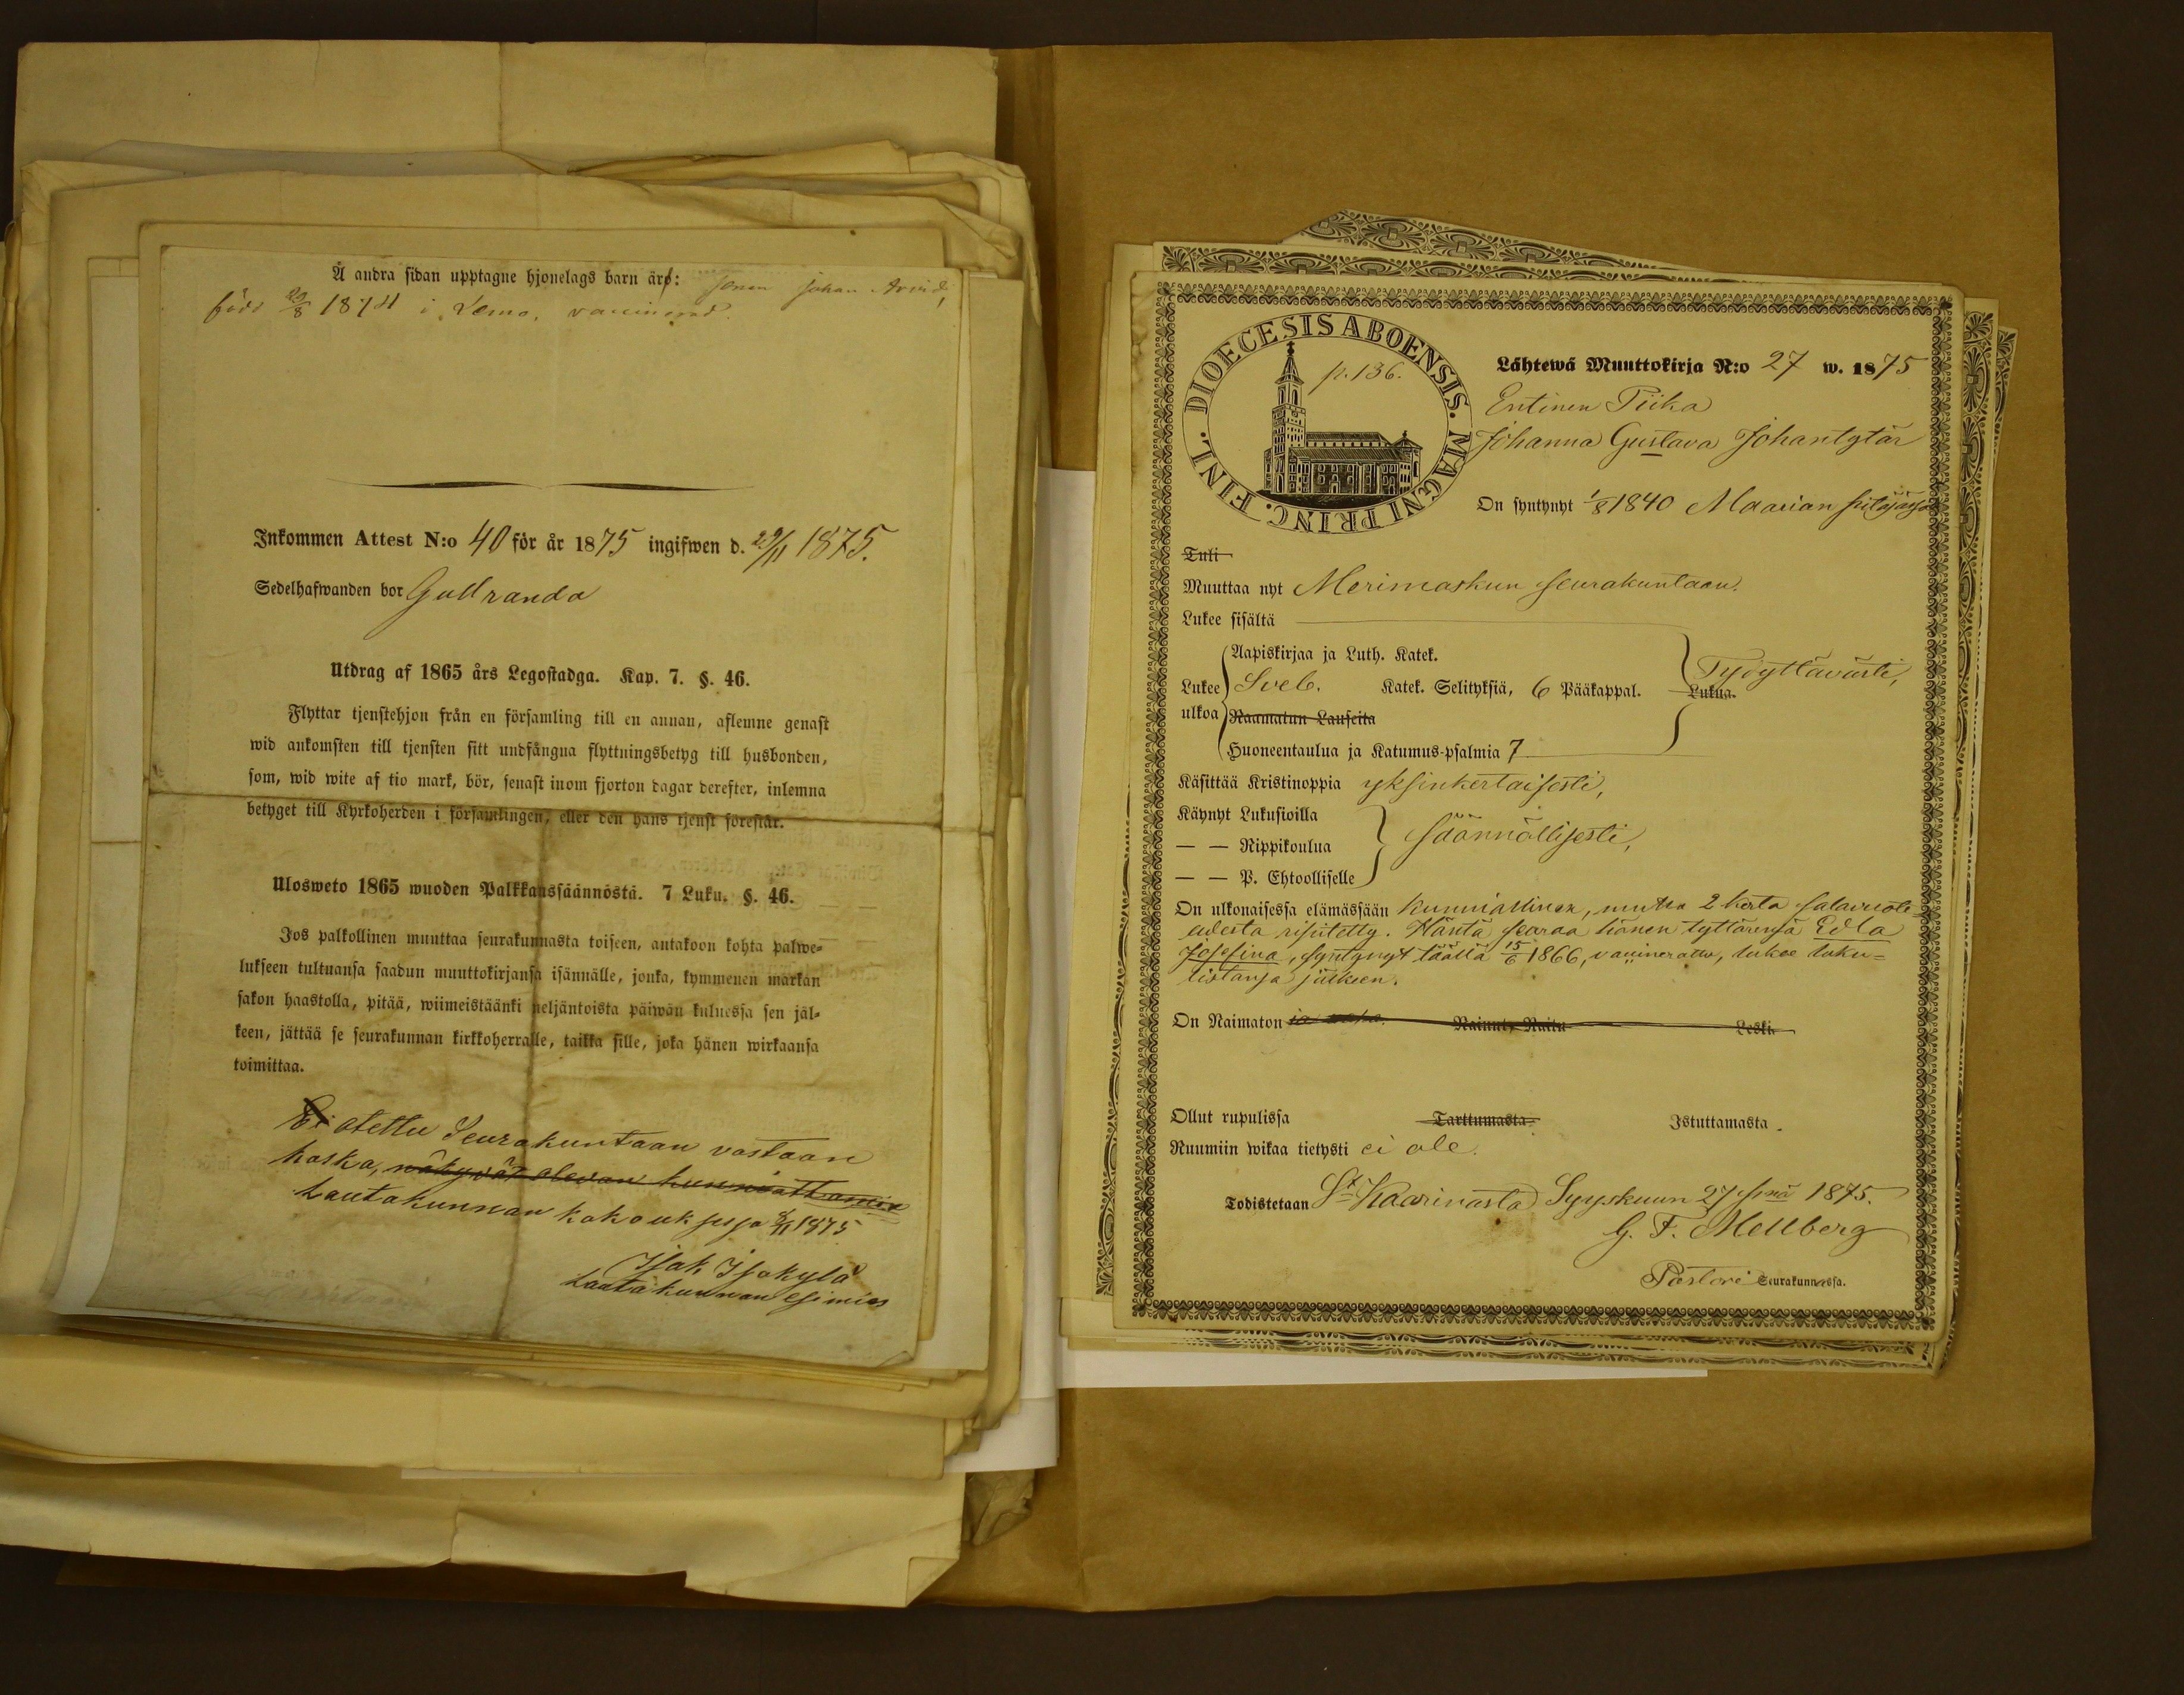 Å andra sidan upptagne hjonelags barn äro: sonen Johan Arvid,
född 29/8 1874 i Lemo, vaccinerad.
Inkommen Attest N:o 40 för år 1875 ingifwen d. 29/11 1875.
Sedelhafwanden bor Gullranda
Utdrag af 1865 års Legostadga. Kap. 7. §. 46.
Flyttar tjenstehjon från en församling till en annan, aflemne genast
wid ankomsten till tjensten sitt undfångna flyttningsbetyg till husbonden,
som, wid wite af tio mark, bör, senast inom fjorton dagar derefter, inlemna
betyget till Kyrkoherden i församlingen, eller den hans tjenst förestår.
Ulosweto 1865 wuoden Palkkaussäännöstä. 7 Luku. §. 46.
Jos palkollinen muuttaa seurakunnasta toiseen, antakoon kohta palwe-
lukseen tultuansa saadun muuttokirjansa isännälle, jonka, kymmenen markan
sakon haastolla, pitää, wiimeistäänki neljäntoista päiwän kuluessa sen jäl-
keen, jättää se seurakunnan kirkkoherralle, taikka sille, joka hänen wirkaansa
toimittaa.
Ei otettu Seurakuntaan vastaan
koska, näkyvät olevan
Lautakunnan kokouksessa 1875
Isak Isokylä
Lautakunnan esimies
DIOECESIS ABOENSIS. MAGNI PRINC. FINL.
p. 136.
Lähtewä Muuttokirja N:o 27 w. 1875
Entinen Piika
Johanna Gustava Johantytär
On syntynyt 1/8 1840 Maarian pitäjäsä
Tuli
Muuttaa nyt Merimaskun seurakuntaan.
Lukee sisältä
Aapiskirjaa ja Luth. Katek.
Lukee Sveb. Katek. Selityksiä, 6 Pääkappal. Lukua. Tyydyttävästi,
ulkoa Raamatun Lauseita
Huoneentaulua ja Katumus-psalmia 7
Käsittää Kristinoppia yksinkertaisesti,
Käynyt Lukusioilla
— — Rippikoulua säännöllisesti,
— — P. Ehtoolliselle
On ulkonaisessa elämässään kunniallinen, mutta 2 kerta salavuote-
udesta ripitetty. Häntä seuraa hänen tyttärensä Edla
Josefina, syntynyt täällä 15/6 1866, vaccinerattu, lukee luku-
listansa jälkeen.
On Naimaton ja vapa. Nainut, Naitu Leski
Ollut rupulissa Tarttumasta Istuttamasta.
Ruumiin wikaa tietysti ei ole.
Todistetaan St Kaarinasta Syyskuun 27 psnä 1875.
G. F. Mellberg
Pastori Seurakunnassa.